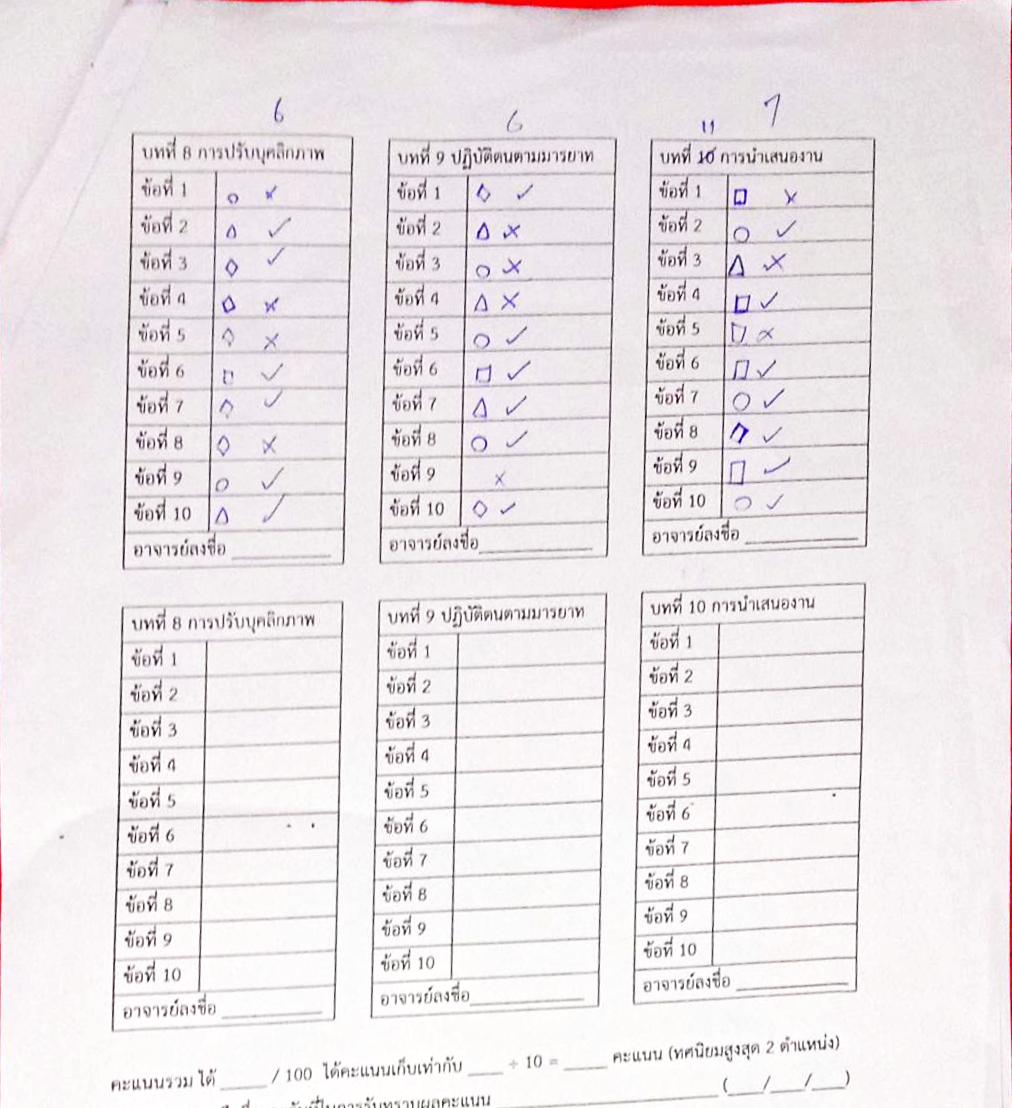 6
บทที่ 8 การปรับบุคลิกภาพ
ข้อที่ 1 ○ ✗
ข้อที่ 2 △ ✓
ข้อที่ 3 ◇ ✓
ข้อที่ 4 ◇ ✗
ข้อที่ 5 ◇ ✗
ข้อที่ 6 □ ✓
ข้อที่ 7 ◇ ✓
ข้อที่ 8 ◇ ✗
ข้อที่ 9 ○ ✓
ข้อที่ 10 △ ✓
อาจารย์ลงชื่อ
6
บทที่ 9 ปฏิบัติตนตามมารยาท
ข้อที่ 1 ◇ ✓
ข้อที่ 2 △ ✗
ข้อที่ 3 ○ ✗
ข้อที่ 4 △ ✗
ข้อที่ 5 ○ ✓
ข้อที่ 6 □ ✓
ข้อที่ 7 △ ✓
ข้อที่ 8 ○ ✓
ข้อที่ 9 ✗
ข้อที่ 10 ◇ ✓
อาจารย์ลงชื่อ
11 7
บทที่ 10 การนำเสนองาน
ข้อที่ 1 □ ✗
ข้อที่ 2 ○ ✓
ข้อที่ 3 △ ✗
ข้อที่ 4 □ ✓
ข้อที่ 5 □ ✗
ข้อที่ 6 □ ✓
ข้อที่ 7 ○ ✓
ข้อที่ 8 ◇ ✓
ข้อที่ 9 □ ✓
ข้อที่ 10 ○ ✓
อาจารย์ลงชื่อ
บทที่ 8 การปรับบุคลิกภาพ
ข้อที่ 1
ข้อที่ 2
ข้อที่ 3
ข้อที่ 4
ข้อที่ 5
ข้อที่ 6
ข้อที่ 7
ข้อที่ 8
ข้อที่ 9
ข้อที่ 10
อาจารย์ลงชื่อ
บทที่ 9 ปฏิบัติตนตามมารยาท
ข้อที่ 1
ข้อที่ 2
ข้อที่ 3
ข้อที่ 4
ข้อที่ 5
ข้อที่ 6
ข้อที่ 7
ข้อที่ 8
ข้อที่ 9
ข้อที่ 10
อาจารย์ลงชื่อ
บทที่ 10 การนำเสนองาน
ข้อที่ 1
ข้อที่ 2
ข้อที่ 3
ข้อที่ 4
ข้อที่ 5
ข้อที่ 6
ข้อที่ 7
ข้อที่ 8
ข้อที่ 9
ข้อที่ 10
อาจารย์ลงชื่อ
คะแนนรวม ได้ _____ / 100 ได้คะแนนเก็บเท่ากับ ____ ÷ 10 = _____ คะแนน (ทศนิยมสูงสุด 2 ตำแหน่ง)
ในการรับทราบผลคะแนน (___/___/___)